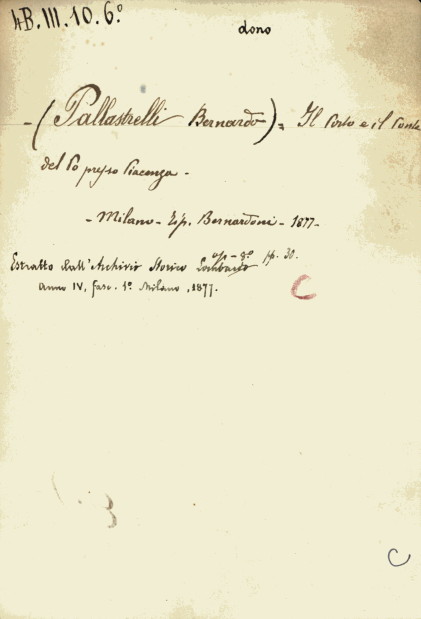 4B.III.10.6.°
dono
- (Pallastrelli Bernardo) = Il Porto e il Ponte
del Po presso Piacenza -
- Milano - Tip. Bernardoni - 1877 -
op - 8° pp. 30.
Estratto dall'Archivio Storico Lombardo
Anno IV, fasc. 1° Milano, 1877.
C
C